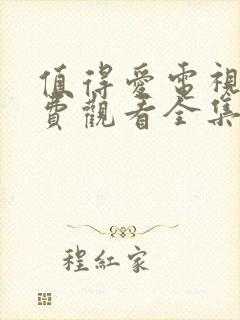 值得愛電視
費觀看全集
程紅家